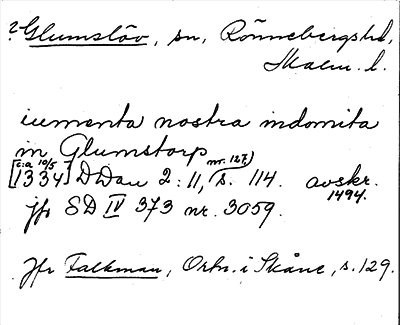 ? Glumslöv, sn, Rönnebergshd,
Malm. l.
iumenta nostra indomita
in Glumstorp
[c:a 10/5 1334] DDan 2:11, nr. 127, s. 114. avskr. 1494.
jfr SD IV 373 nr. 3059.
Jfr Falkman, Ortn. i Skåne, s. 129.